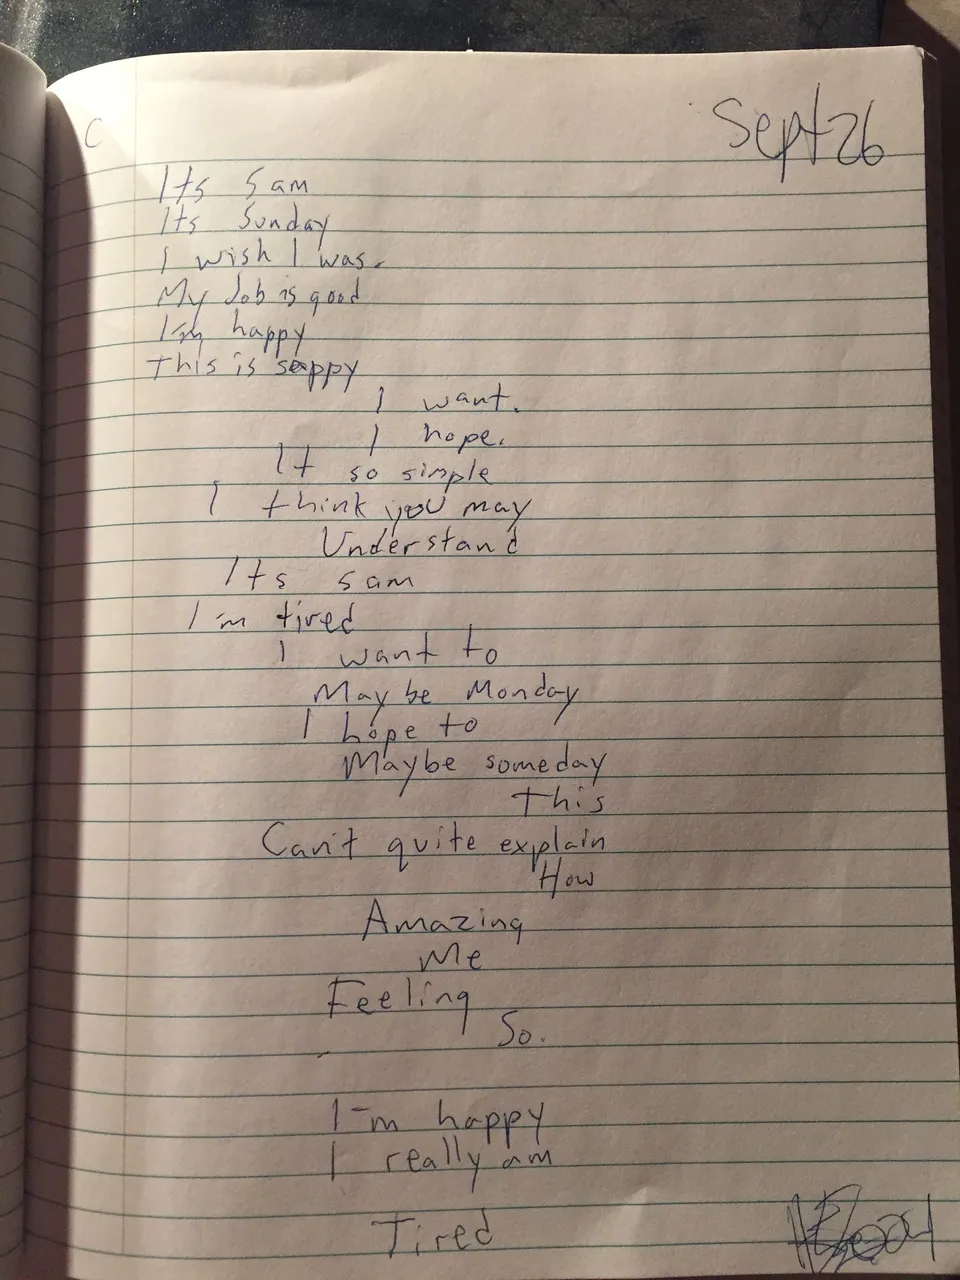 C
Sept 26
Its 5am
Its Sunday
I wish I was.
My Job is good
I'm happy
This is sappy
I want.
I hope.
It so simple
I think you may
Understand
Its 5am
I'm tired
I want to
May be Monday
I hope to
Maybe someday
This
Can't quite explain
How
Amazing
Me
Feeling
So.
I'm happy
I really am
Tired